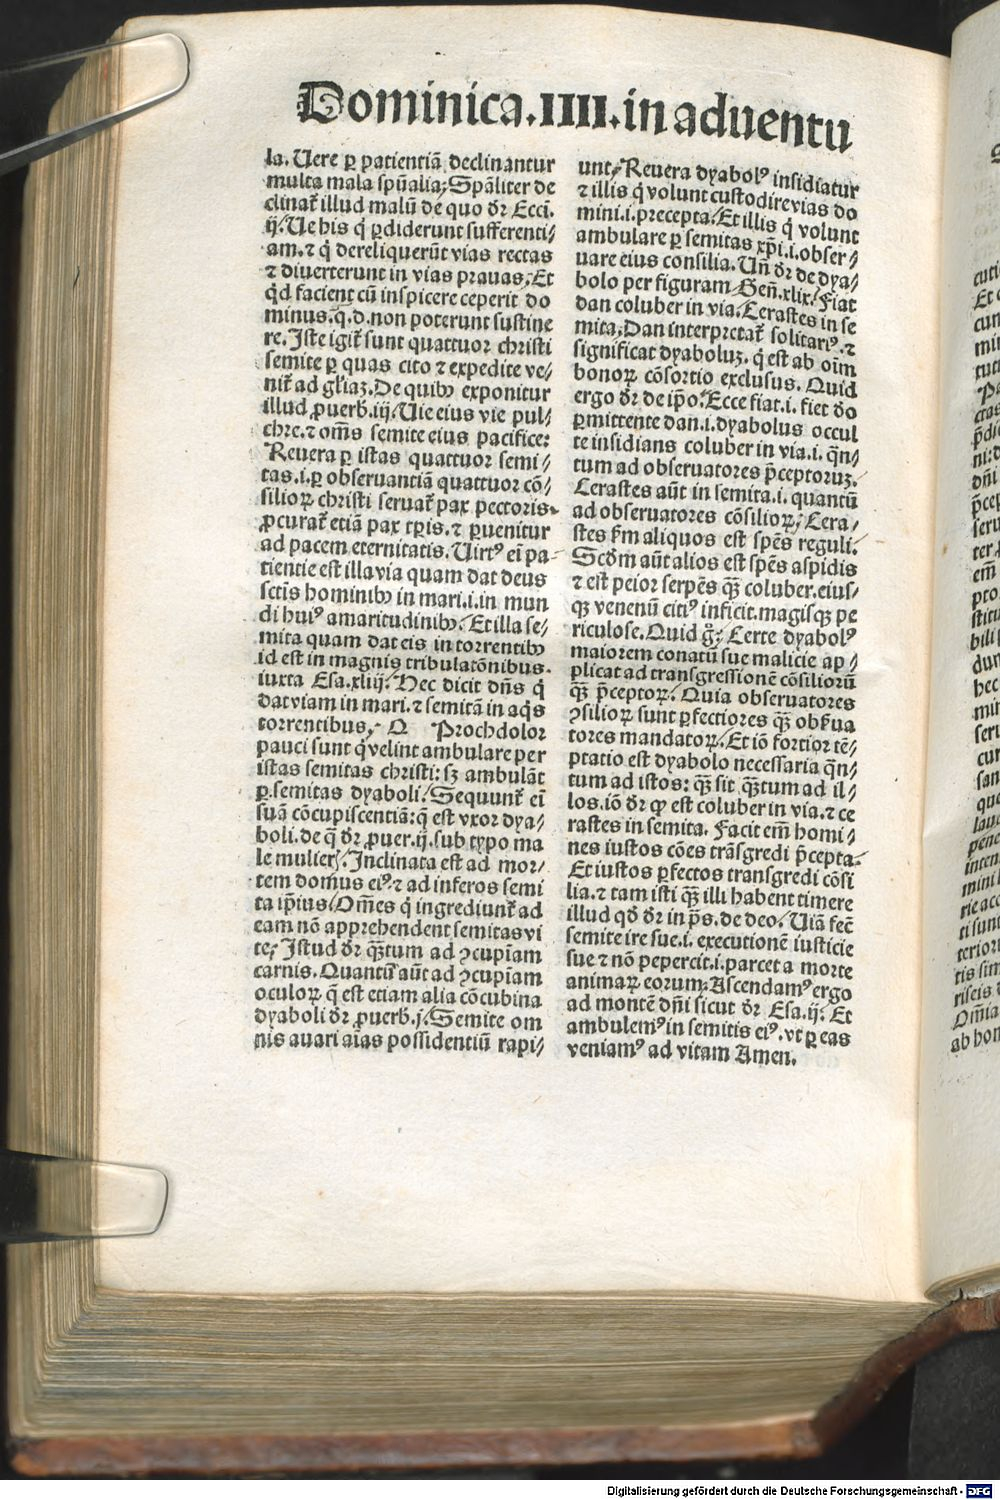 Dominica.IIII.in aduentu
la. Uere ꝑ patientiā declinantur
multa mala spūalia; Spāliter de
clinat᷑ illud malū de quo dr̄ Ecci.
ij. Ue his q̇ ꝑdiderunt sufferenti⸗
am. ⁊ q̇ dereliquerūt vias rectas
⁊ diuerterunt in vias prauas. Et
qd̄ facient cū inspicere ceperit do
minus. q̄. d. non poterunt sustine
re. Iste igit᷑ sunt quattuor christi
semite ꝑ quas cito ⁊ expedite ve⸗
nit᷑ ad gl̄iaꝫ. De quibꝰ exponitur
illud ꝓuerb. iij. Uie eius vie pul⸗
chre. ⁊ om̄s semite eius pacifice:
Reuera ꝑ istas quattuor semi⸗
tas. i. ꝑ obseruantiā quattuor cō⸗
silioꝝ christi seruat᷑ pax pectoris.
ꝓcurat᷑ etiā pax tꝑis. ⁊ ꝑuenitur
ad pacem eternitatis. Uirtꝰ ei̇̄ pa⸗
tientie est illa via quam dat deus
sctīs hominibꝰ in mari. i. in mun
di huiꝰ amaritudinibꝰ. Et illa se⸗
mita quam dat eis in torrentibꝰ
id est in magnis tribulatōnibus.
iuxta Esa. xliij. Hec dicit dn̄s q̇
dat viam in mari. ⁊ semitā in aq̇s
torrentibus. O Prochdolor
pauci sunt q̇ velint ambulare per
istas semitas christi: sꝫ ambulāt
ꝑ semitas dyaboli. Sequunt᷑ ei̇̄
suā cōcupiscentiā: q̄ est vxor dya⸗
boli. de q̄ dr̄ ꝓuer. ij. sub typo ma
le mulier̄. Inclinata est ad mor⸗
tem domus eiꝰ. ⁊ ad inferos semi
ta ip̄ius. Om̄es q̇ ingrediunt᷑ ad
eam nō apprehendent semitas vi
te; Istud dr̄ qꝫ̄tum ad ꝯcupīam
carnis. Quantū aūt ad ꝯcupīam
oculoꝝ q̄ est etiam alia cōcubina
dyaboli dr̄ ꝓuerb. j. Semite om
nis auari aīas possidentiū rapi⸗
unt. Reuera dyabolꝰ insidiatur
⁊ illis q̇ volunt custodire vias do
mini. i. precepta. Et illis q̇ volunt
ambulare ꝑ semitas xp̄i. i. obser⸗
uare eius consilia. Un̄ dr̄ de dya⸗
bolo per figuram Gen̄. xlix. Fiat
dan coluber in via. Cerastes in se
mita; Dan interpretat᷑ solitariꝰ. ⁊
significat dyaboluꝫ. q̇ est ab oīm
bonoꝝ cōsortio exclusus. Quid
ergo dr̄ de ip̄o. Ecce fiat. i. fiet do
ꝑmittente dan. i. dyabolus occul
te insidians coluber in via. i. q̄n⸗
tum ad obseruatores p̄ceptoruꝫ.
Cerastes aūt in semita. i. quantū
ad obseruatores cōsilioꝝ; Cera⸗
stes f̄m aliquos est spēs reguli.
Scd̄m aūt alios est spēs aspidis
⁊ est peior serpēs qꝫ̄ coluber. eius⸗
qꝫ venenū citiꝰ inficit. magisqꝫ pe
riculose. Quid gͦ; Certe dyabolꝰ
maiorem conatū sue malicie ap⸗
plicat ad transgressionē cōsilioruꝫ
qꝫ̄ p̄ceptoꝝ. Quia obseruatores
ꝯsilioꝝ sunt ꝑfectiores qꝫ̄ obẜua
tores mandatoꝝ. Et iō fortior tē⸗
ptatio est dyabolo necessaria q̄n⸗
tum ad istos: qꝫ̄ sit qꝫ̄tum ad il⸗
los. iō dr̄ ꝙ est coluber in via. ⁊ ce
rastes in semita. Facit em̄ homi⸗
nes iustos cōes trāsgredi p̄cepta.
Et iustos ꝑfectos transgredi cōsi
lia. ⁊ tam isti qꝫ̄ illi habent timere
illud qd̄ dr̄ in p̄s. de deo. Uiā fec̄
semite ire sue. i. executionē iusticie
sue ⁊ nō pepercit. i. parcet a morte
animaꝝ eorum; Ascendamꝰ ergo
ad montē dn̄i sicut dr̄ Esa. ij. Et
ambulemꝰ in semitis eiꝰ. vt ꝑ eas
veniamꝰ ad vitam Amen.
Digitalisierung gefördert durch die Deutsche Forschungsgemeinschaft - DFG